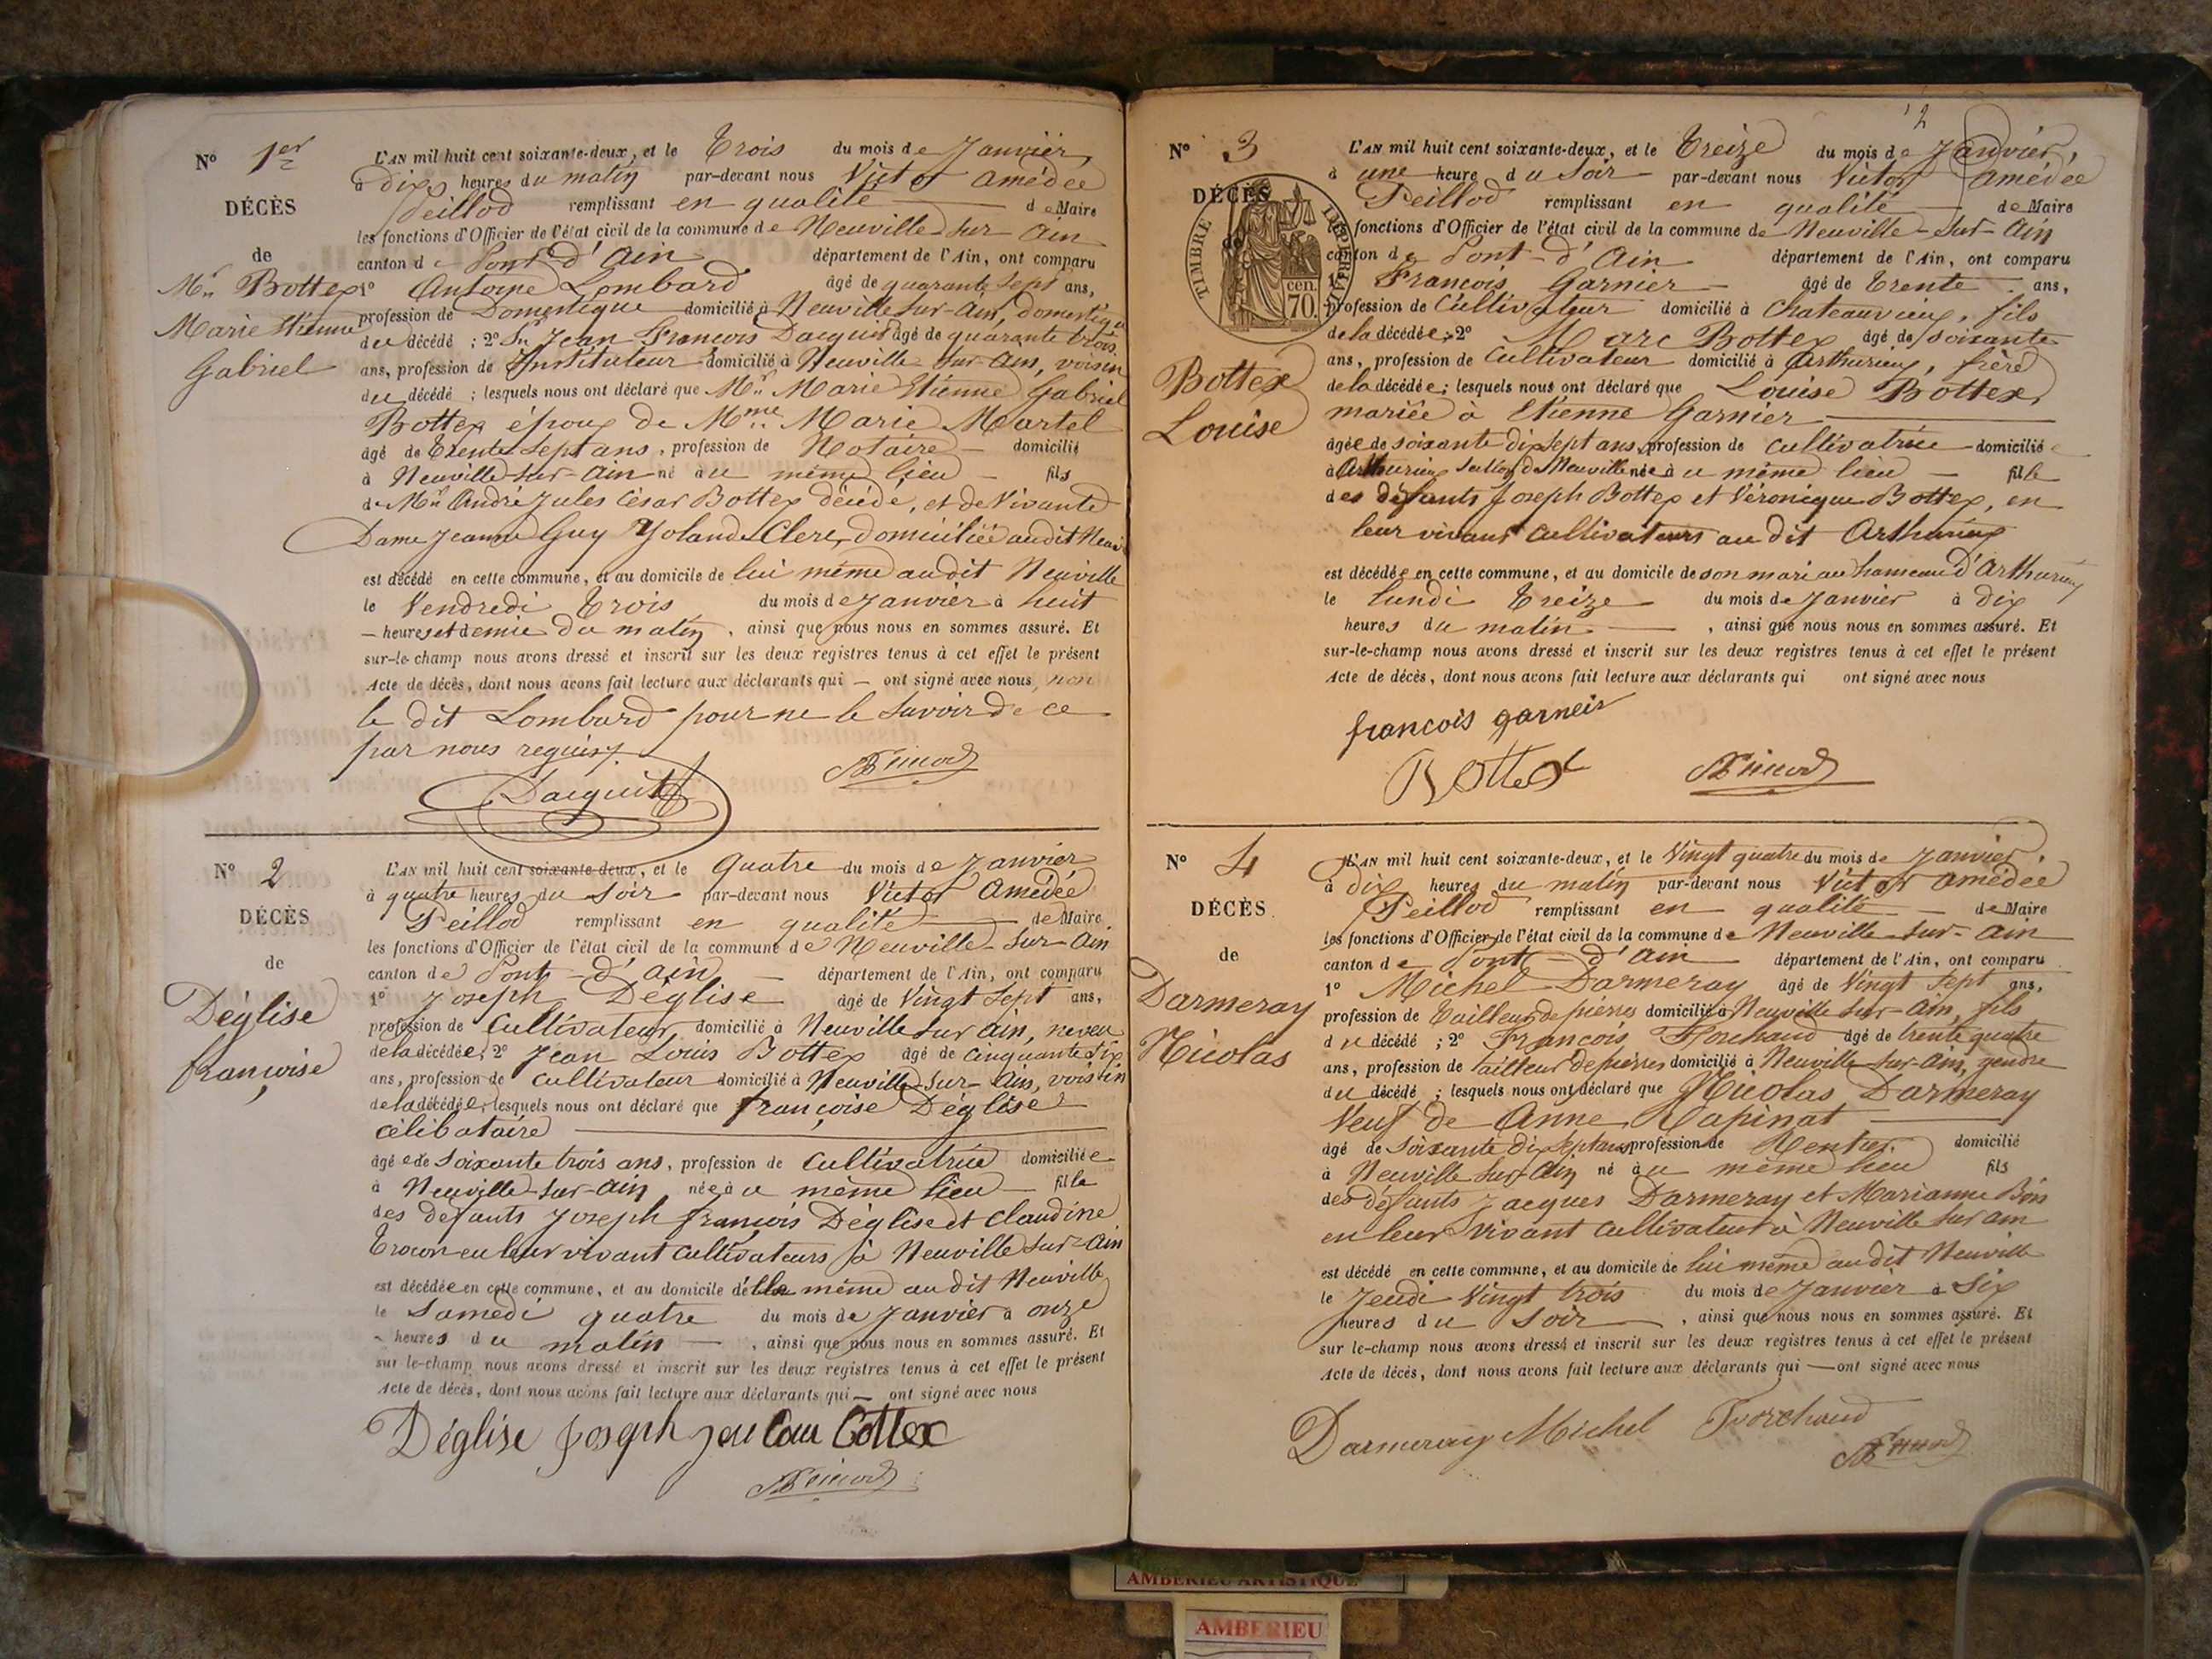 Nº 1er
DÉCÈS
de
Mr Bottex
Marie Etienne
Gabriel
L'AN mil huit cent soixante-deux, et le Trois du mois de Janvier,
à dix heures du matin par-devant nous Victor Amédée
Peillod remplissant en qualité de Maire
les fonctions d'Officier de l'état civil de la commune de Neuville sur Ain
canton de Pont d'Ain département de l'Ain, ont comparu
1º Antoine Lombard âgé de quarante sept ans,
profession de Domestique domicilié à Neuville sur-Ain, domestique
du décédé ; 2º Sr Jean François Dacquin âgé de quarante trois
ans, profession de Instituteur domicilié à Neuville sur Ain, voisin
du décédé ; lesquels nous ont déclaré que Mr Marie Etienne Gabriel
Bottex époux de Mme Marie Martel
âgé de Trente Sept ans, profession de Notaire domicilié
à Neuville-sur-Ain né au même lieu fils
de Mr André Jules César Bottex décédé, et de Vivante
Dame Jeanne Guy Yolande Clerc, domiciliée audit
est décédé en cette commune, et au domicile de lui même audit Neuville
le Vendredi Trois du mois de Janvier à huit
heures et demie du matin, ainsi que nous nous en sommes assuré. Et
sur-le-champ nous avons dressé et inscrit sur les deux registres tenus à cet effet le présent
Acte de décès, dont nous avons fait lecture aux déclarants qui ont signé avec nous, non
le dit Lombard pour ne le savoir de ce
par nous requis.
Nº 2
DÉCÈS
de
Déglise
françoise
L'AN mil huit cent soixante-deux, et le Quatre du mois de Janvier
à quatre heures du Soir par-devant nous Victor Amédée
Peillod remplissant en qualité de Maire
les fonctions d'Officier de l'état civil de la commune de Neuville-Sur-Ain
canton de Pont-d'Ain département de l'Ain, ont comparu
1º Joseph Déglise âgé de Vingt Sept ans,
profession de Cultivateur, domicilié à Neuville sur Ain, neveu
de la décédée; 2º Jean Louis Bottex âgé de cinquante six
ans, profession de cultivateur domicilié à Neuville-sur-Ain, voisin
de la décédée; lesquels nous ont déclaré que françoise Déglise
célibataire
âgée de Soixante trois ans, profession de Cultivatrice domiciliée
à Neuville-Sur-Ain née au même lieu fille
des défunts Joseph françois Déglise et Claudine
en leur vivant cultivateurs à Neuville sur-Ain
est décédée en cette commune, et au domicile d'elle même au dit Neuville
le Samedi quatre du mois de Janvier à onze
heures du matin, ainsi que nous nous en sommes assuré. Et
sur-le-champ nous avons dressé et inscrit sur les deux registres tenus à cet effet le présent
Acte de décès, dont nous avons fait lecture aux déclarants qui ont signé avec nous
Déglise Joseph
2
Nº 3
DÉCÈS
de
TIMBRE IMPÉRIAL
70 cen.
Bottex
Louise
L'AN mil huit cent soixante-deux, et le Treize du mois de Janvier,
à une heure du Soir par-devant nous Victor Amédée
Peillod remplissant en qualité de Maire
les fonctions d'Officier de l'état civil de la commune de Neuville-Sur-Ain
canton de Pont-d'Ain département de l'Ain, ont comparu
1º François Garnier âgé de Trente ans,
profession de Cultivateur domicilié à Chateauvieux, fils
de la décédée; 2º Marc Bottex âgé de soixante
ans, profession de Cultivateur domicilié à Arthurieux, frère
de la décédée; lesquels nous ont déclaré que Louise Bottex,
mariée à Etienne Garnier
âgée de soixante dix sept ans, profession de cultivatrice domiciliée
à Arthurieux section de Neuville née au même lieu fille
des défunts Joseph Bottex et Véronique Bottex, en
leur vivant cultivateurs au dit Arthurieux
est décédée en cette commune, et au domicile de son mari au hameau d'Arthurieux
le lundi Treize du mois de Janvier à dix
heures du matin, ainsi que nous nous en sommes assuré. Et
sur-le-champ nous avons dressé et inscrit sur les deux registres tenus à cet effet le présent
Acte de décès, dont nous avons fait lecture aux déclarants qui ont signé avec nous
françois garneir
Bottex
Nº 4
DÉCÈS
de
Darmeray
Nicolas
L'AN mil huit cent soixante-deux, et le Vingt quatre du mois de Janvier,
à dix heures du matin par-devant nous Victor Amédée
Peillod remplissant en qualité de Maire
les fonctions d'Officier de l'état civil de la commune de Neuville-Sur-Ain
canton de Pont-d'Ain département de l'Ain, ont comparu
1º Michel Darmeray âgé de Vingt Sept ans,
profession de Tailleur de pierres domicilié à Neuville-sur-Ain, fils
du décédé ; 2º François âgé de trente quatre
ans, profession de tailleur de pierres domicilié à Neuville-sur-Ain, gendre
du décédé ; lesquels nous ont déclaré que Nicolas Darmeray
Veuf de Anne Rapinat
âgé de Soixante Dix Sept ans profession de Rentier domicilié
à Neuville sur Ain né au même lieu fils
des défunts Jacques Darmeray et Marianne
en leur vivant cultivateurs à Neuville sur Ain
est décédé en cette commune, et au domicile de lui même audit Neuville
le Jeudi Vingt trois du mois de Janvier à Six
heures du Soir, ainsi que nous nous en sommes assuré. Et
sur le-champ nous avons dressé et inscrit sur les deux registres tenus à cet effet le présent
Acte de décès, dont nous avons fait lecture aux déclarants qui ont signé avec nous
Darmeray Michel
AMBERIEU ARTISTIQUE
AMBERIEU